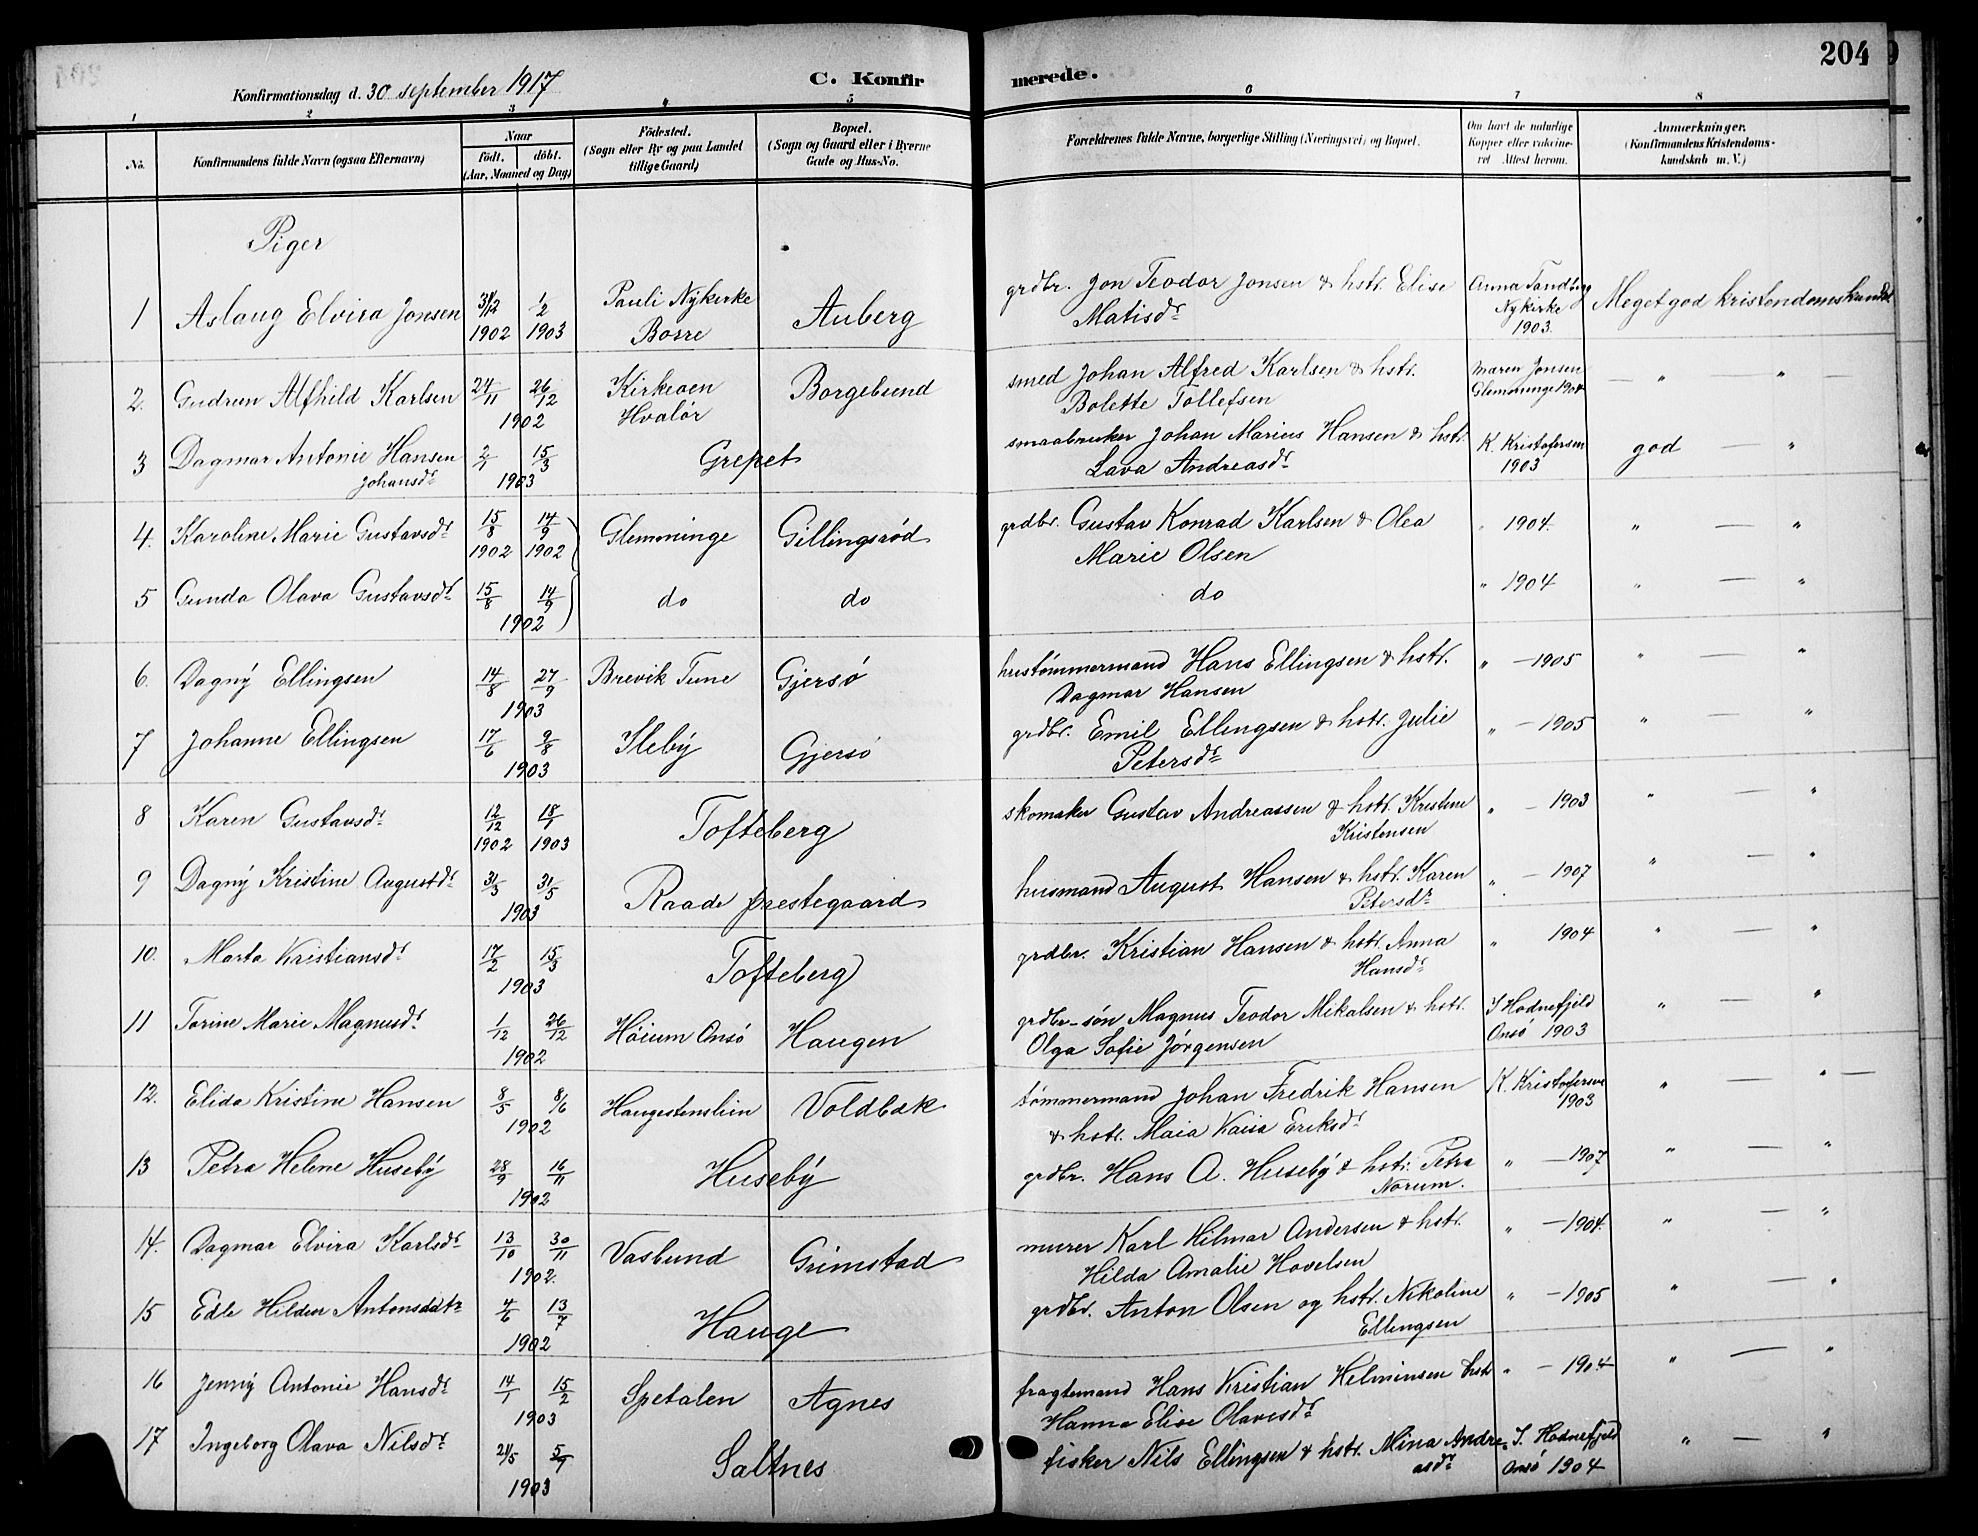 204
Konfirmationsdag d. 30 september 1917
C. Konfir
merede.
1 2 3 4 5 6 7 8
No.
Konfirmandens fulde Navn (ogsaa Efternavn)
Naar
födt. döbt.
(Aar, Maaned og Dag)
Födested.
(Sogn eller By og paa Landet
tillige Gaard)
Bopæl.
(Sogn og Gaard eller i Byerne
Gade og Hus-No.
Forældrenes fulde Navne, borgerlige Stilling (Næringsvei) og Bopæl.
Om havt de naturlige
Kopper eller vakcine-
ret Attest herom.
Anmærkninger.
(Konfirmandens Kristendoms-
kundskab m. V.)
Piger
1 Aslaug Elvira Jonsen 31/12 1902 1/2 1903 Pauli Nykirke Borre Auberg grdbr. Jon Teodor Jonsen & hstr. Elise Matisdr Anna Sandberg Nykirke 1903. Meget god kristendomskundsk
2. Gudrun Alfhild Karlsen 24/11 26/12 1902 Kirkeøen Hvalør Borgebund smed Johan Alfred Karlsen & hstr. Bolette Tollefsen Maren Jonsen Glemminge 1904 — " — " —
3 Dagmar Antonie Hansen Johansdr 2/1 15/3 1903 Grepet smaabruker Johan Marius Hansen & hstr. Lava Andreasdr K. Kristofersen 1903 god — "
4. Karoline Marie Gustavsdr 15/8 1902 14/9 1902 Glemminge Gillingsrød grdbr. Gustav Konrad Karlsen & Olea Marie Olsen " 1904. " — "
5 Gunda Olava Gustavsdr 15/8 14/9 1902 do do do " 1904 " — "
6. Dagny Ellingsen 14/8 27/9 1903 Brevik Tune Gjersø hustømmermand Hans Ellingsen & hstr. Dagmar Hansen " — 1905 " — "
7 Johanne Ellingsen 17/6 9/8 1903 Ileby Gjersø grdbr. Emil Ellingsen & hstr. Julie Petersdr " — 1905 " — "
8 Karen Gustavsdr 12/12 1902 18/1 1903 Tofteberg skomaker Gustav Andreassen & hstr. Kristine Kristensen " — 1903 " — "
9 Dagny Kristine Augustdr 31/3 31/5 1903 Raade prestegaard husmand August Hansen & hstr. Karen Petersdr " — 1907 " — "
10. Marta Kristiansdr 17/2 15/3 1903 Tofteberg grdbr. Kristian Hansen & hstr. Anna Hansdr " 1904 " — "
11 Torine Marie Magnusdr 1/12 26/12 1902 Høium Onsø Haugen grdbr-søn Magnus Teodor Mikalsen & hstr. Olga Sofie Jørgensen I Hodnefjeld Onsø 1903 " — "
12. Elida Kristine Hansen 8/5 8/6 1902 Haugestenslien Voldbæk tømmermand Johan Fredrik Hansen & hstr. Maia Kaisa Eriksdr K. Kristofersen 1903 " — " —
13 Petra Helene Huseby 28/9 16/11 1902 Huseby grdbr. Hans A. Huseby & hstr. Petra Norum. " — 1907 " — "
14. Dagmar Elvira Karlsdr 13/10 30/11 1902. Vasbund Grimstad murer Karl Hilmar Andersen & hstr. Hilda Amalie Hovelsen " — 1904. " — "
15 Edle Hildur Antonsdatr 4/6 13/7 1902 Hauge grdbr. Anton Olsen og hstr. Nikoline Ellingsen " — 1905 " — "
16 Jenny Antonie Hansdr 14/1 15/2 1903 Spetalen Agnes fragtemand Hans Kristian Helminsen hstr Hanna Elise Olavesdr " — 1904 " — "
17 Ingeborg Olava Nilsdr 21/5 5/7 1903 Saltnes fisker Nils Ellingsen & hstr. Mina Andreasdr I. Hodnefjeld Onsø 1904 " — "